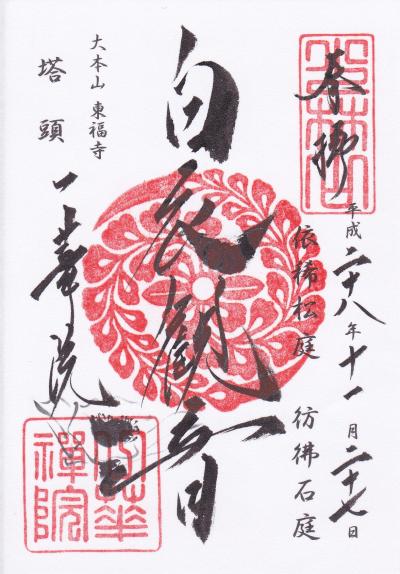 奉拝
平成二十八年十一月二十七日
依稀松庭 彷彿石庭
白衣観音
大本山 東福寺
塔頭 一華院
一華禪院